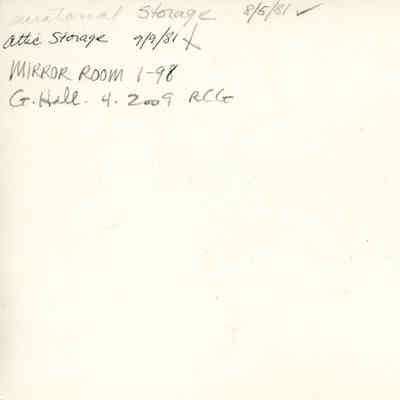 curatorial Storage 8/5/81 ✓
Attic Storage 9/9/81 X
MIRROR ROOM 1-98
G. Hall. 4. 2009 RCG